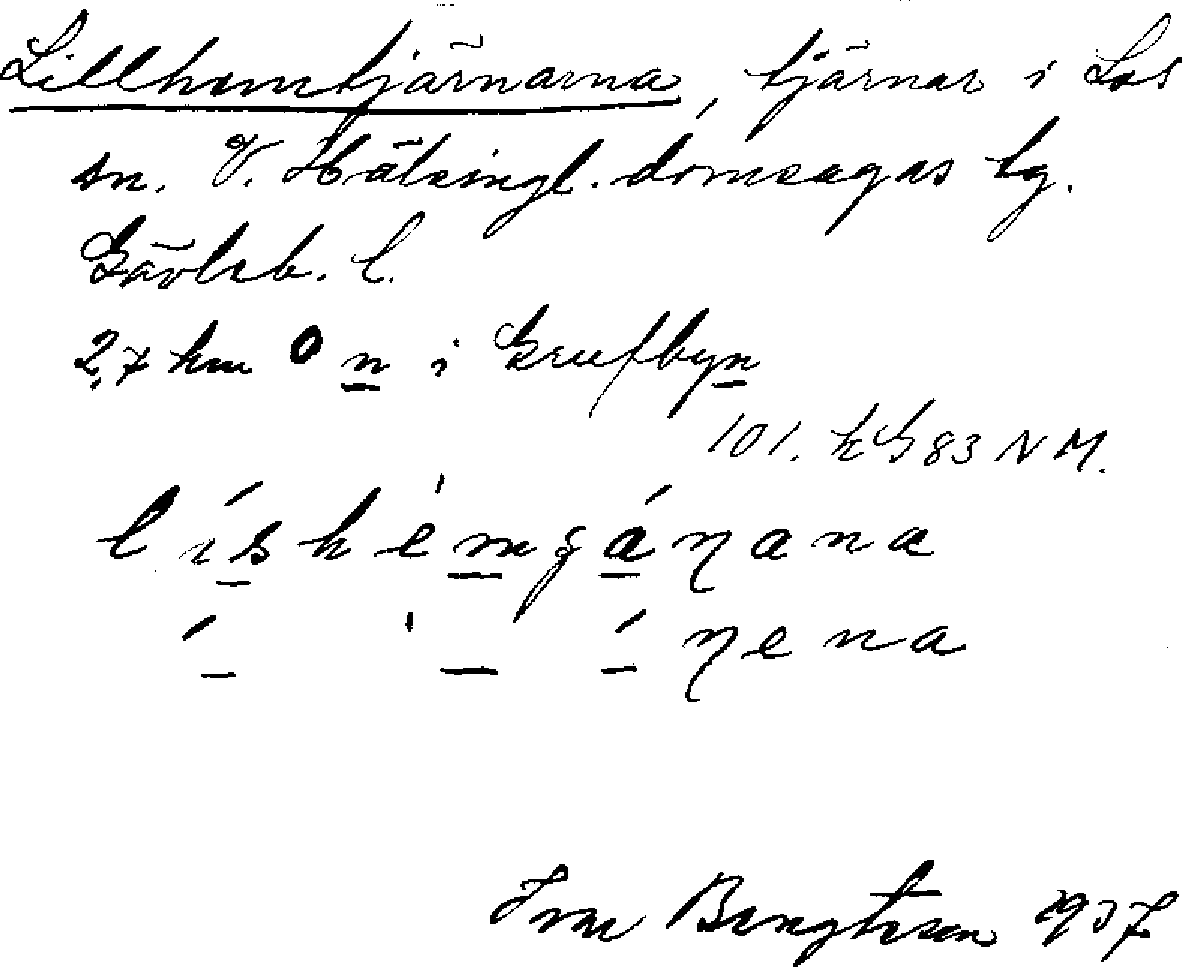 Lillhemtjärnarna, tjärnar i Los
sn. V. Hälsingl. domsagas tg.
Gävleb. l.
2,7 km O n i Grufbyn
101. h G 83 N M.
l i s h e m g a n a n a
n e n a
Bengtsson 1937